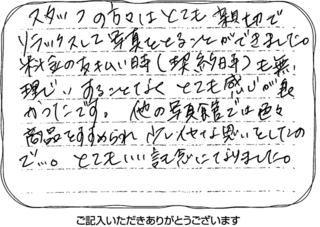 スタッフの方々はとても親切で
リラックスして写真をとることができました。
料金の支払い時(契約時)も無
理じいすることなくとても感じが良
かったです。他の写真館では色々
商品をすすめられ少しイヤな思いをしたの
で…。とてもいい記念になりました。
ご記入いただきありがとうございます